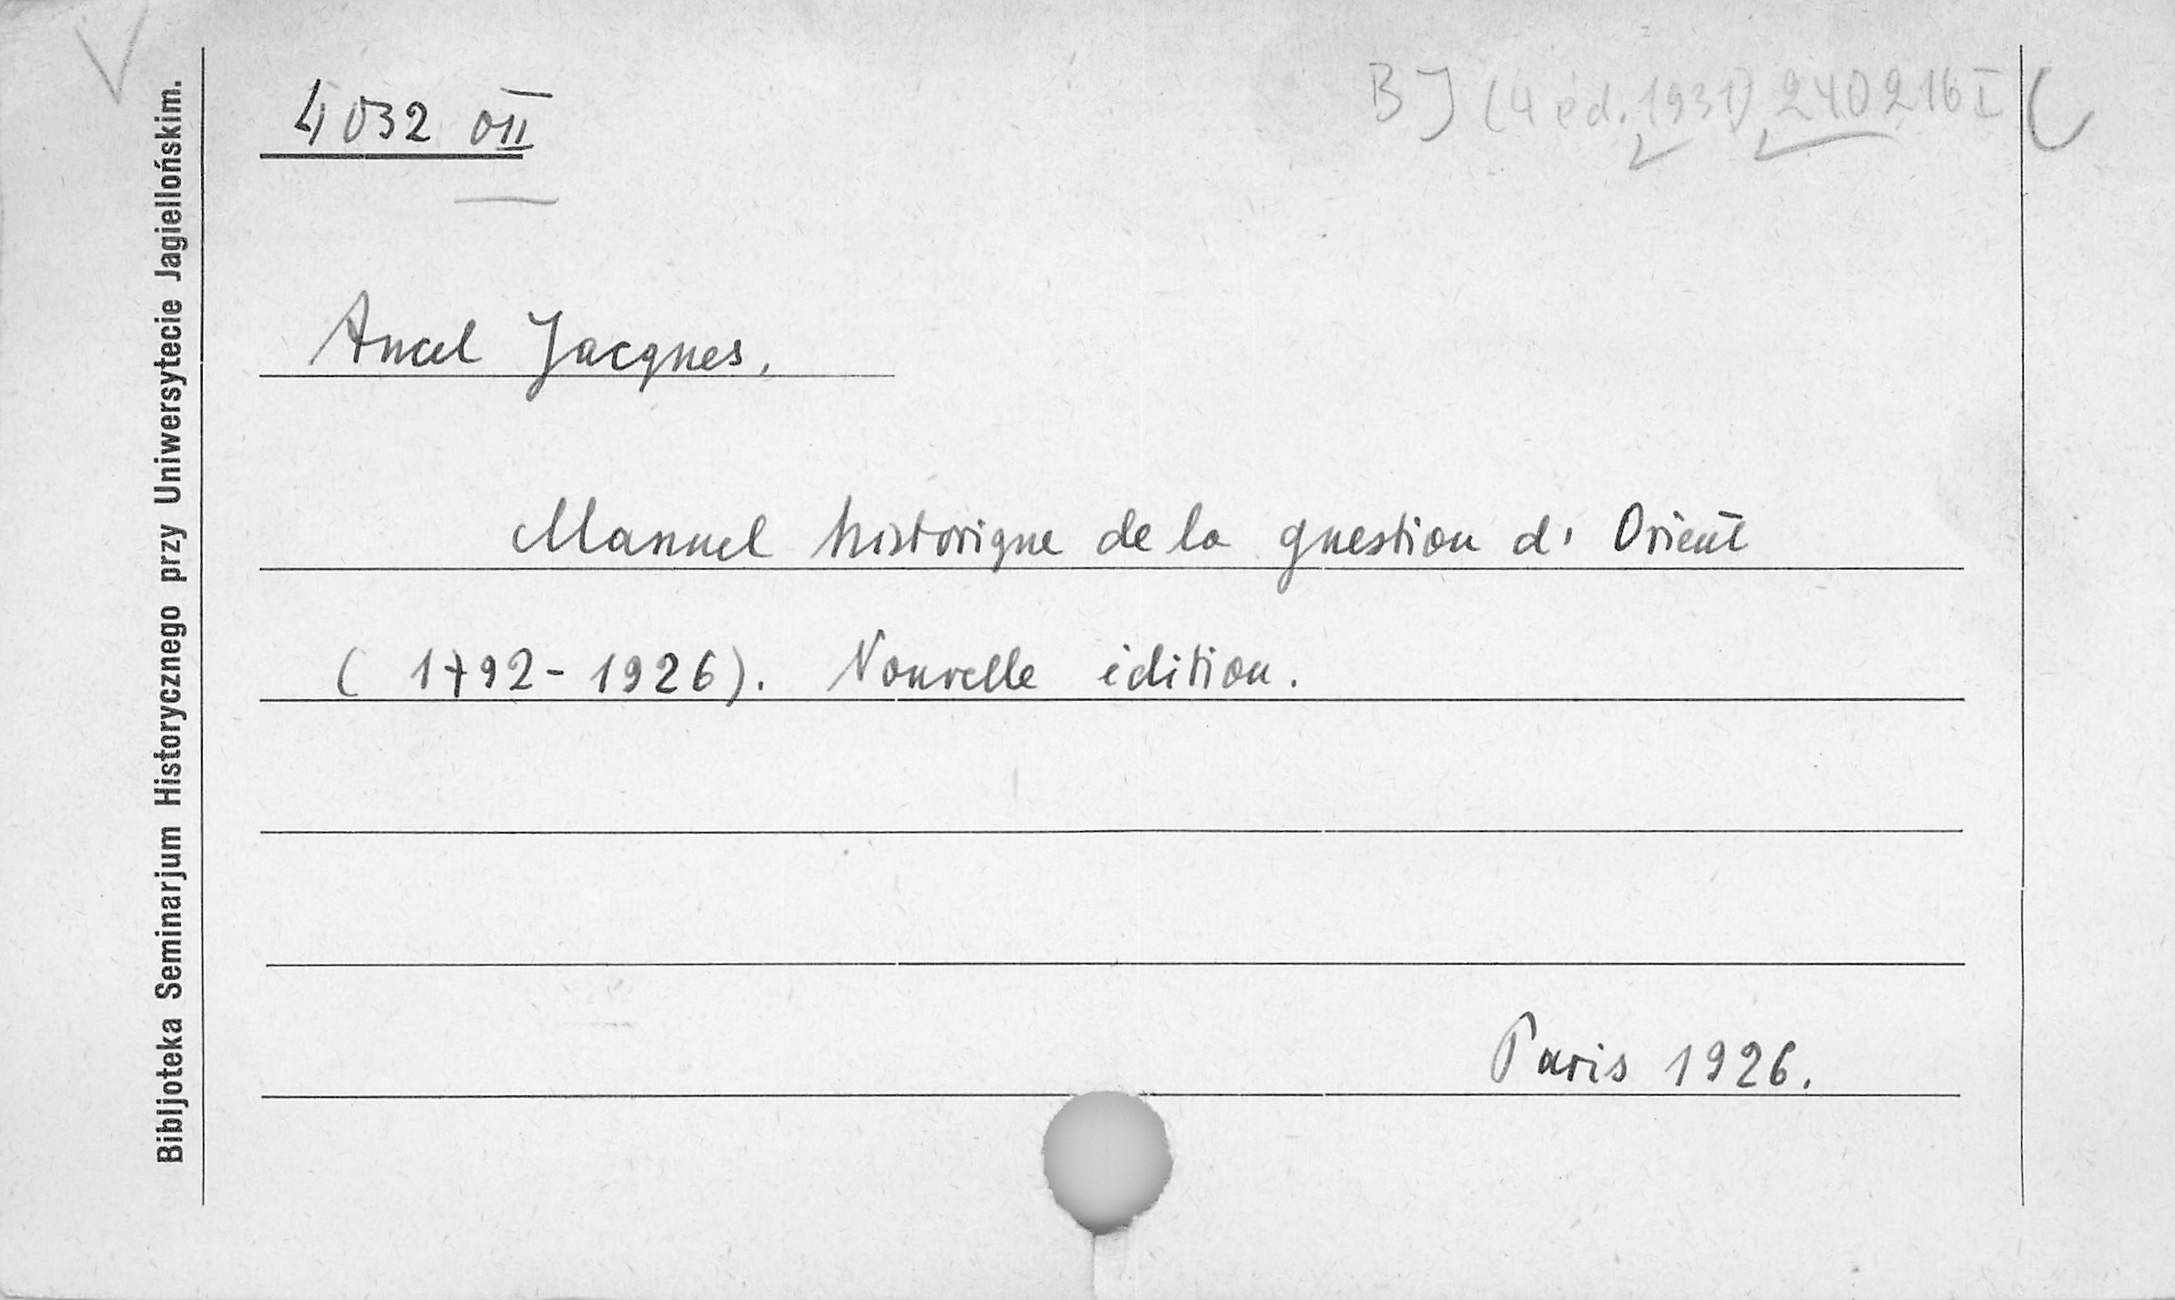 4032 OII
BJ (4 éd. 1931) 240216 I
Bibljoteka Seminarjum Historycznego przy Uniwersytecie Jagiellońskim.
Ancel Jacques.
Manuel historique de la question d' Orient
(1792-1926). Nouvelle édition.
Paris 1926.